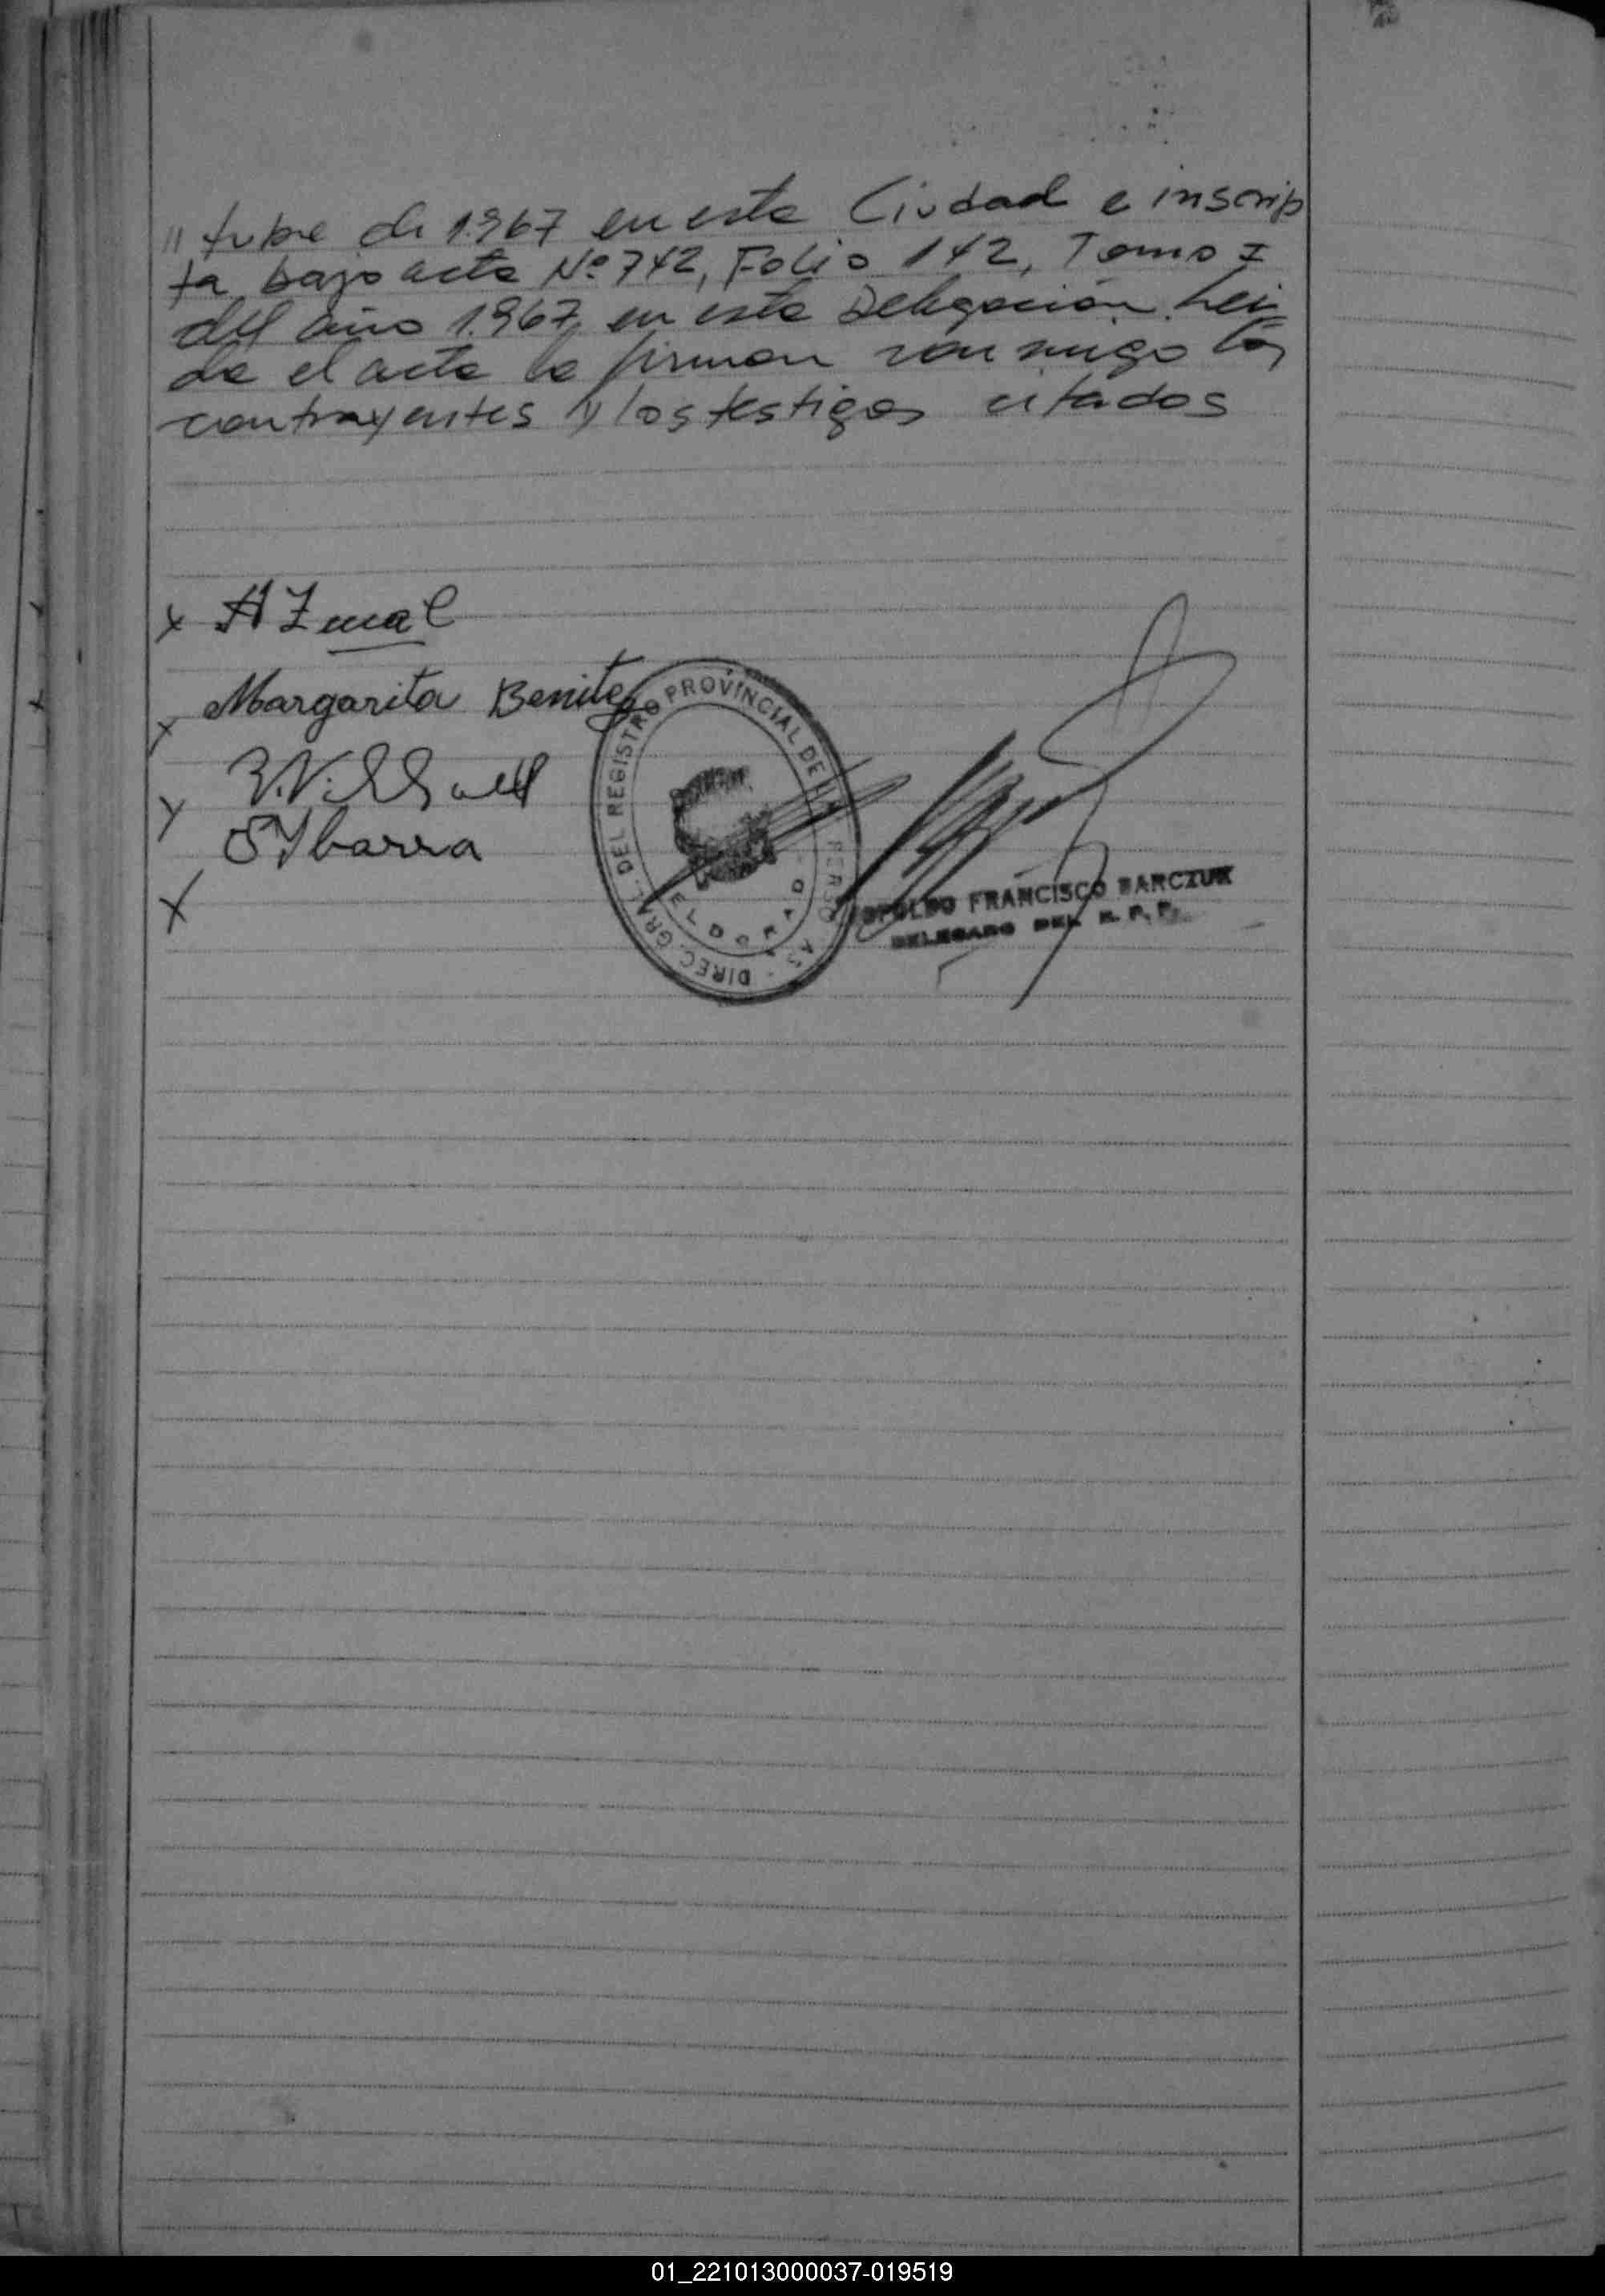 " tubre de 1.967 en esta Ciudad e inscrip
ta bajo acta Nº 742, Folio 142, Tomo I
del año 1.967, en esta Delegación. Lei
da el acta la firman conmigo los
contrayentes y los testigos citados
x A Zmal
Margarita Benitez
x
y
SYbarra
x
DIREC. GRAL. DEL REGISTRO PROVINCIAL DE LAS PERSONAS
ELDORADO
FRANCISCO BARCZUK
DELEGADO DEL R. P. P.
01_221013000037-019519